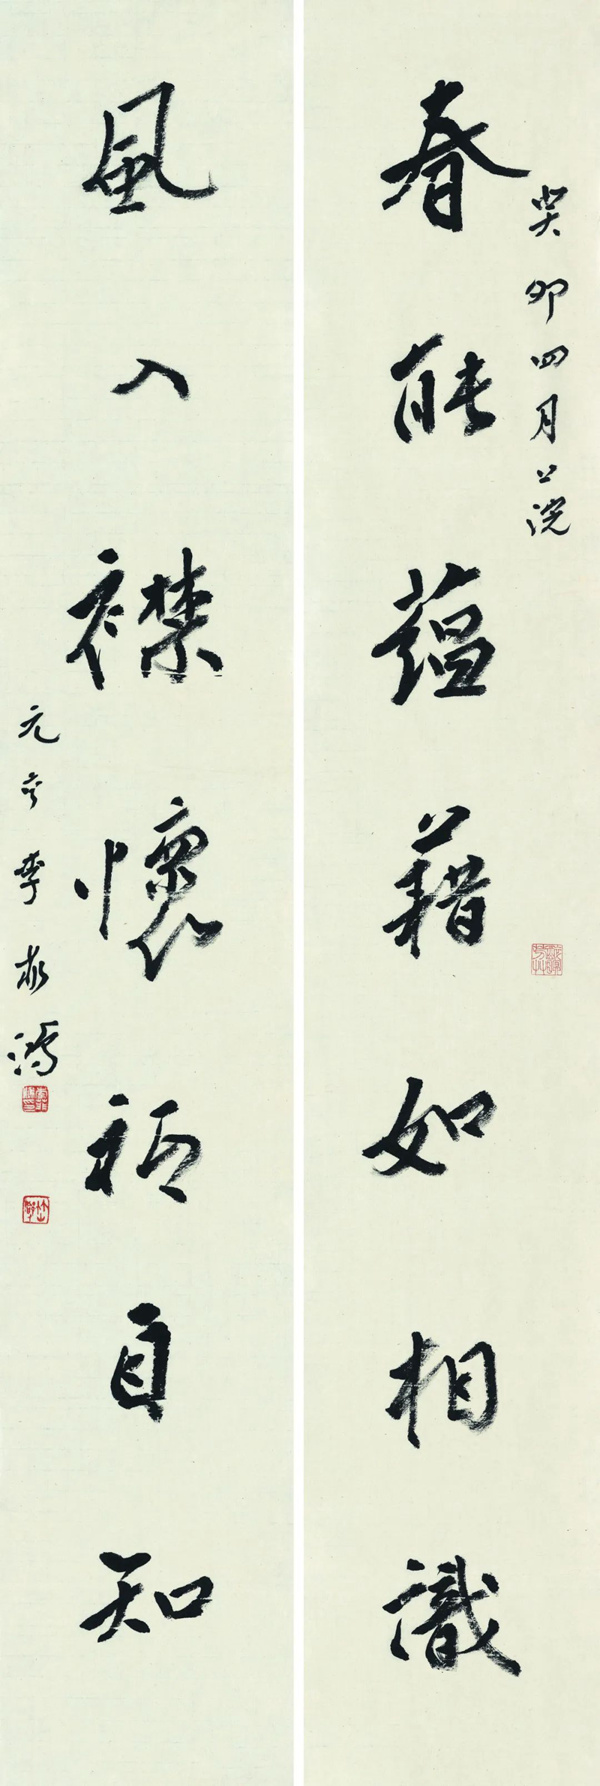 春能蘊藉如相識
癸卯四月
風入襟懷祗自知
元亨李